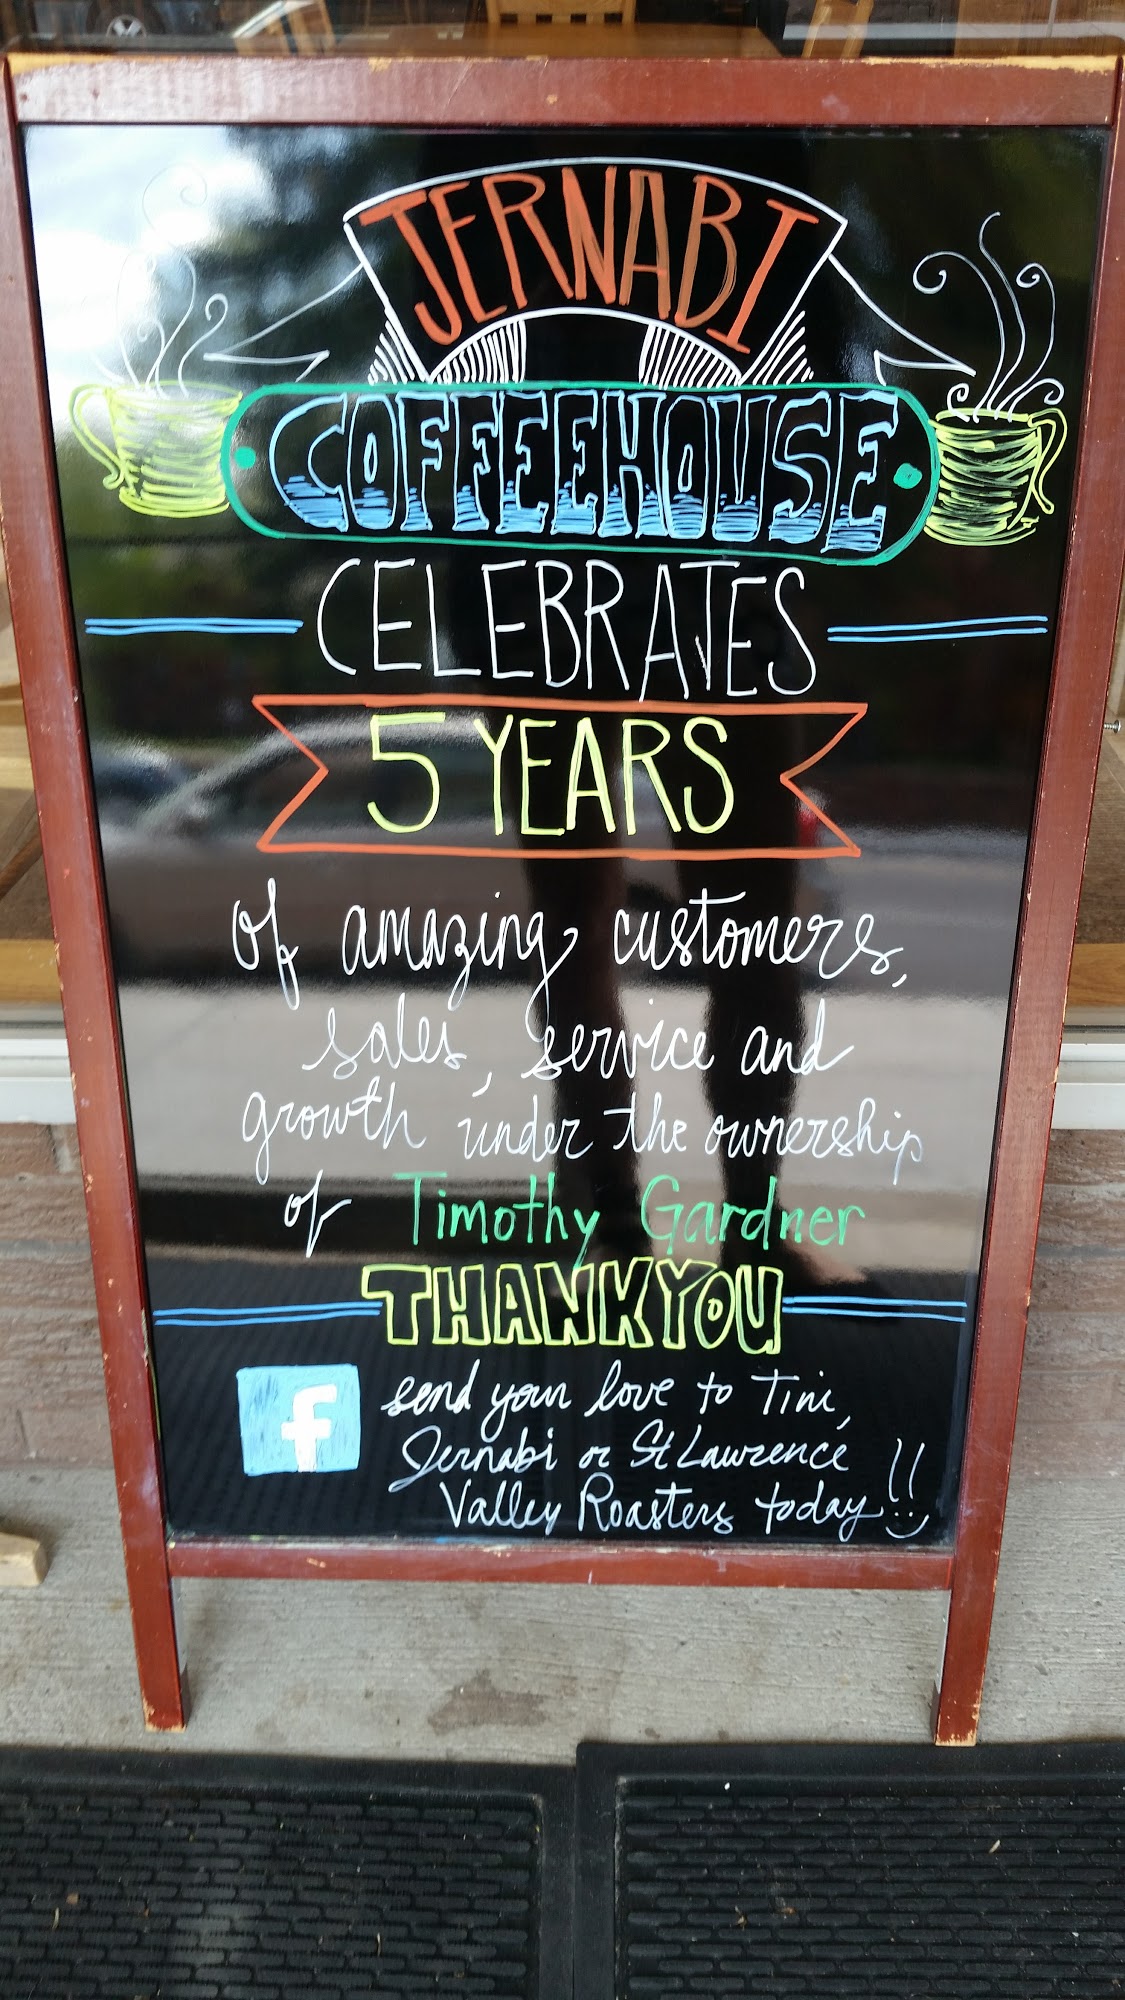 JERNABI
COFFEEHOUSE
CELEBRATES
5 YEARS
of amazing customers,
sales, service and
growth under the ownership
of Timothy Gardner
THANK YOU
f send your love to Tini,
Jernabi or St Lawrence
Valley Roasters today!!